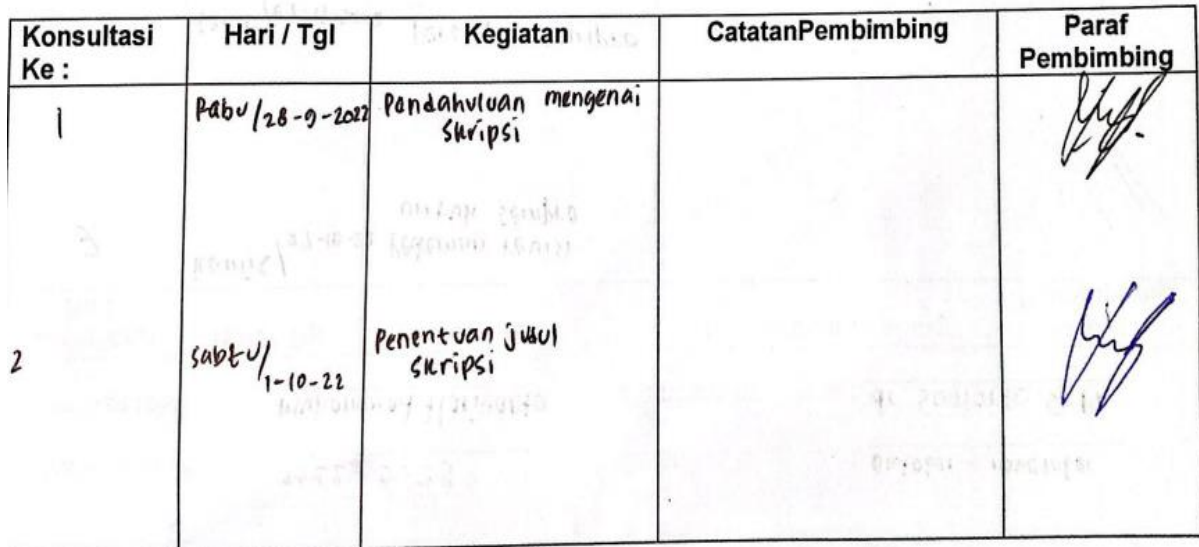 Konsultasi Ke :
Hari / Tgl
Kegiatan
CatatanPembimbing
Paraf Pembimbing
1
Rabu/28-9-2022
Pendahuluan mengenai
skripsi
2
Sabtu/1-10-22
Penentuan judul
skripsi